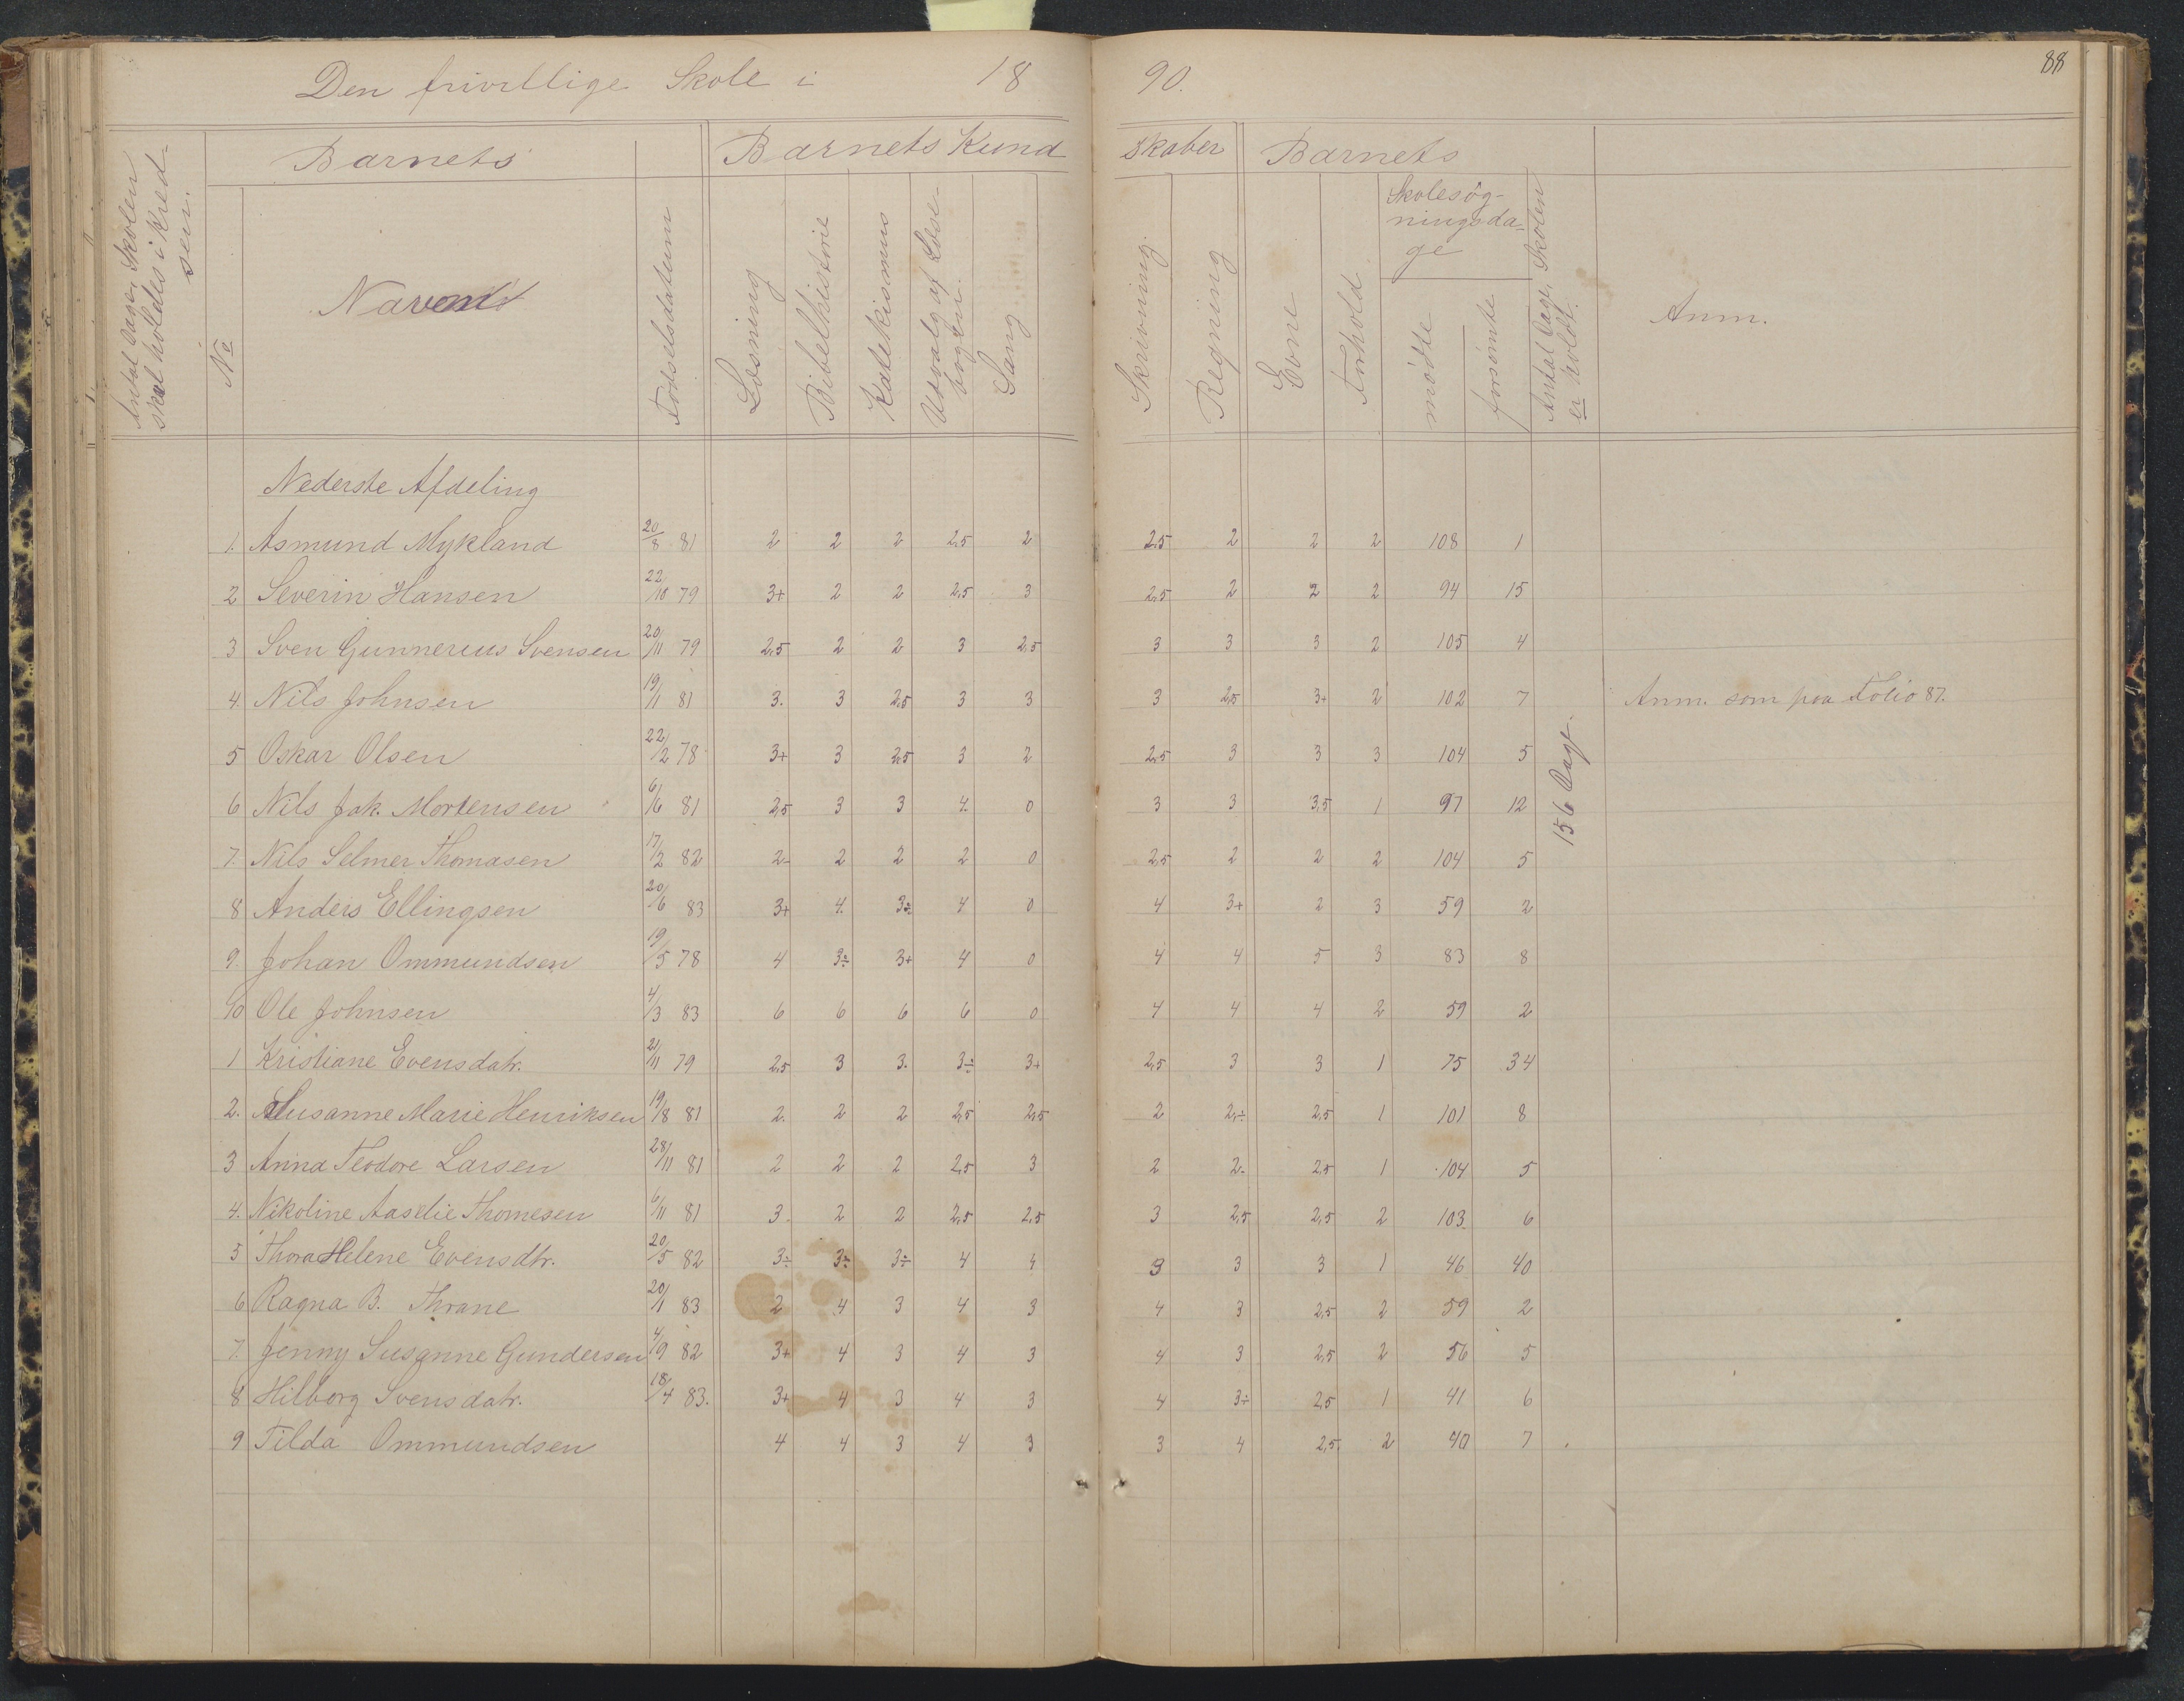 88
Den frivillige Skole i 18 90.
Antal Dage, Skolen skal holdes i Kredsen.
Barnets
Barnets Kund skaber
Barnets
No
Navn
Fødselsdatum
Læsning
Bibelhistorie
Katekismus
Udvalg af Læsebogen.
Sang
Skrivning.
Regning
Evne
Forhold.
Skolesøgningsdage
mødte
forsømte
Antal Dage, Skolen er holdt.
Anm.
Nederste Afdeling
1. Asmund Mykland 20/8 81 2 2 2 2,5 2 2,5 2 2 2 108 1
2 Severin Hansen 22/10 79 3+ 2 2 2,5 3 2,5 2 2 2 94 15
3 Sven Gunnerius Svensen 20/11 79 2,5 2 2 3 2,5 3 3 3 2 105 4
4. Nils Johnsen 19/1 81 3. 3 2,5 3 3 3 2,5 3+ 2 102 7 Anm. som paa Folio 87.
5 Oskar Olsen 22/2 78 3+ 3 2,5 3 2 2,5 3 3 3 104 5
6 Nils Jak. Mortensen 6/6 81 2,5 3 3 4 0 3 3 3,5 1 97 12
156 Dage.
7. Nils Selmer Thomasen 17/2 82 2- 2 2 2 0 2,5 2 2 2 104 5
8 Anders Ellingsen 20/6 83 3+ 4. 3÷ 4 0 4 3+ 2 3 59 2
9. Johan Ommundsen 19/5 78 4 3÷ 3+ 4 0 4 4 5 3 83 8
10 Ole Johnsen 4/3 83 6 6 6 6 0 4 4 4 2 59 2
1 Kristiane Evensdatr. 21/11 79 2,5 3 3. 3÷ 3+ 2,5 3 3 1 75 34
2. Susanne Marie Henriksen 19/8 81 2. 2 2 2,5 2,5 2 2,÷ 2,5 1 101 8
3 Anna Teodore Larsen 28/11 81 2 2 2 2,5 3 2 2. 2,5 1 104 5
4. Nikoline Aaselie Thomesen 6/11 81 3. 2 2 2,5 2,5 3 2,5 2,5 2 103 6
5 Thora Helene Evensdtr. 20/5 82 3÷ 3÷ 3÷ 4 4 3 3 3 1 46 40
6 Ragna B. Thrane 20/1 83 2 4 3 4 3 4 3 2,5 2 59 2
7. Jenny Susanne Gundersen 4/9 82 3+ 4 3 4 3 4 3 2,5 2 56 5
8 Hilborg Svensdatr. 18/4 83. 3+ 4 3 4 3 4 3÷ 2,5 1 41 6
9 Tilda Ommundsen 4 4 3 4 3 3 4 2,5 2 40 7